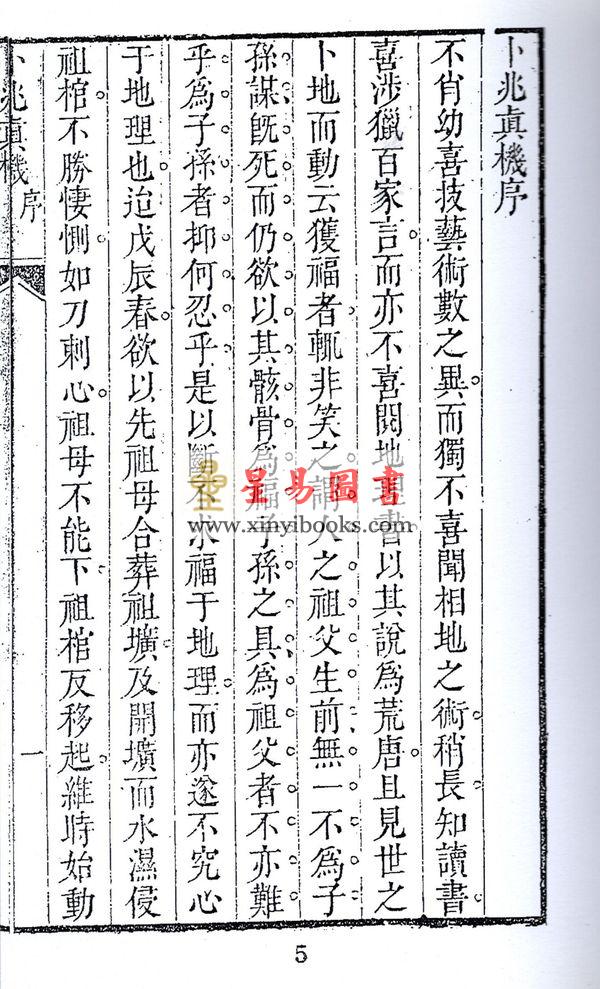 卜兆眞機序
不肖幼喜技藝術數之異而獨不喜聞相地之術稍長知讀書
喜涉獵百家言而亦不喜閱地理書以其說爲荒唐且見世之
卜地而動云獲福者輒非笑之謂人之祖父生前無一不爲子
孫謀旣死而仍欲以其骸骨爲福子孫之具爲祖父者不亦難
乎爲子孫者抑何忍乎是以斷不求福于地理而亦遂不究心
于地理也迨戊辰春欲以先祖母合葬祖壙及開壙而水濕侵
祖棺不勝悽惻如刀刺心祖母不能下祖棺反移起維時始動
卜兆眞機 序
一
星易圖書
www.xinyibooks.com
5